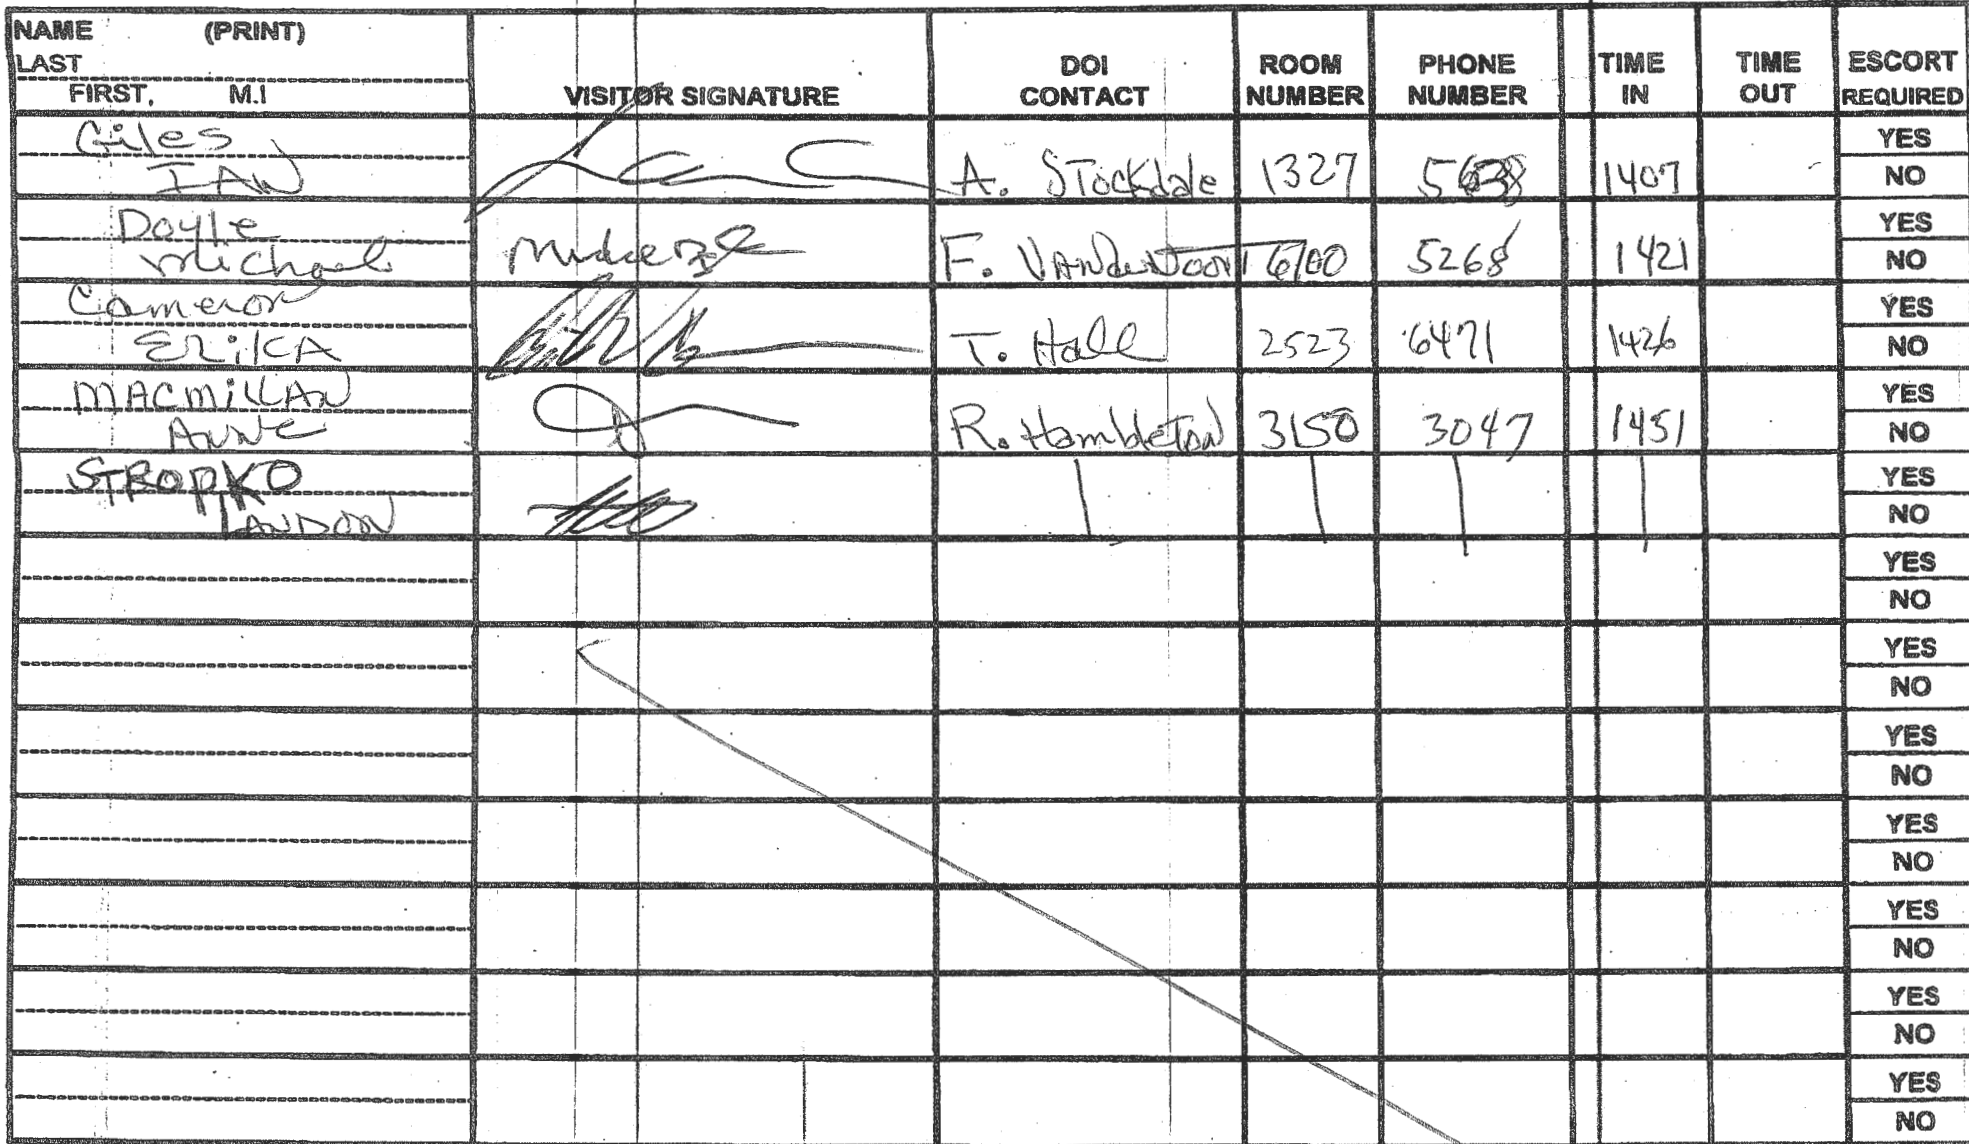 NAME (PRINT)
LAST
FIRST, M.I
VISITOR SIGNATURE
DOI CONTACT
ROOM NUMBER
PHONE NUMBER
TIME IN
TIME OUT
ESCORT REQUIRED
Giles
IAN
A. Stockdale 1327 1407
YES
NO
Doyle
Michael
F. 6100 5268 1421
YES
NO
Cameron
ERIKA
T. Hall 2523 6471 1426
YES
NO
MACMILLAN
ANNE
R. Hambleton 3150 3047 1451
YES
NO
STROPKO
LANDON
YES
NO
YES
NO
YES
NO
YES
NO
YES
NO
YES
NO
YES
NO
YES
NO